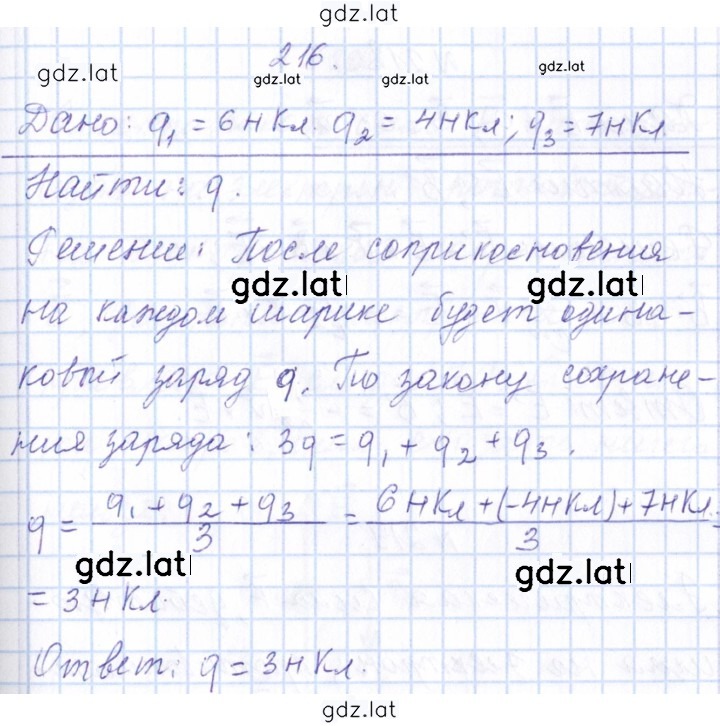 gdz.lat
216.
gdz.lat gdz.lat gdz.lat gdz.lat
Дано: q₁ = 6нКл. q₂ = 4нКл; q₃ = 7нКл
Найти: q.
Решение: После соприкосновения
gdz.lat gdz.lat
на каждом шарике будет одина-
ковый заряд q. По закону сохране-
ния заряда: 3q = q₁ + q₂ + q₃.
q = (q₁ + q₂ + q₃)/3 = (6нКл + (-4нКл) + 7нКл)/3 =
gdz.lat gdz.lat
= 3нКл.
Ответ: q = 3нКл.
gdz.lat